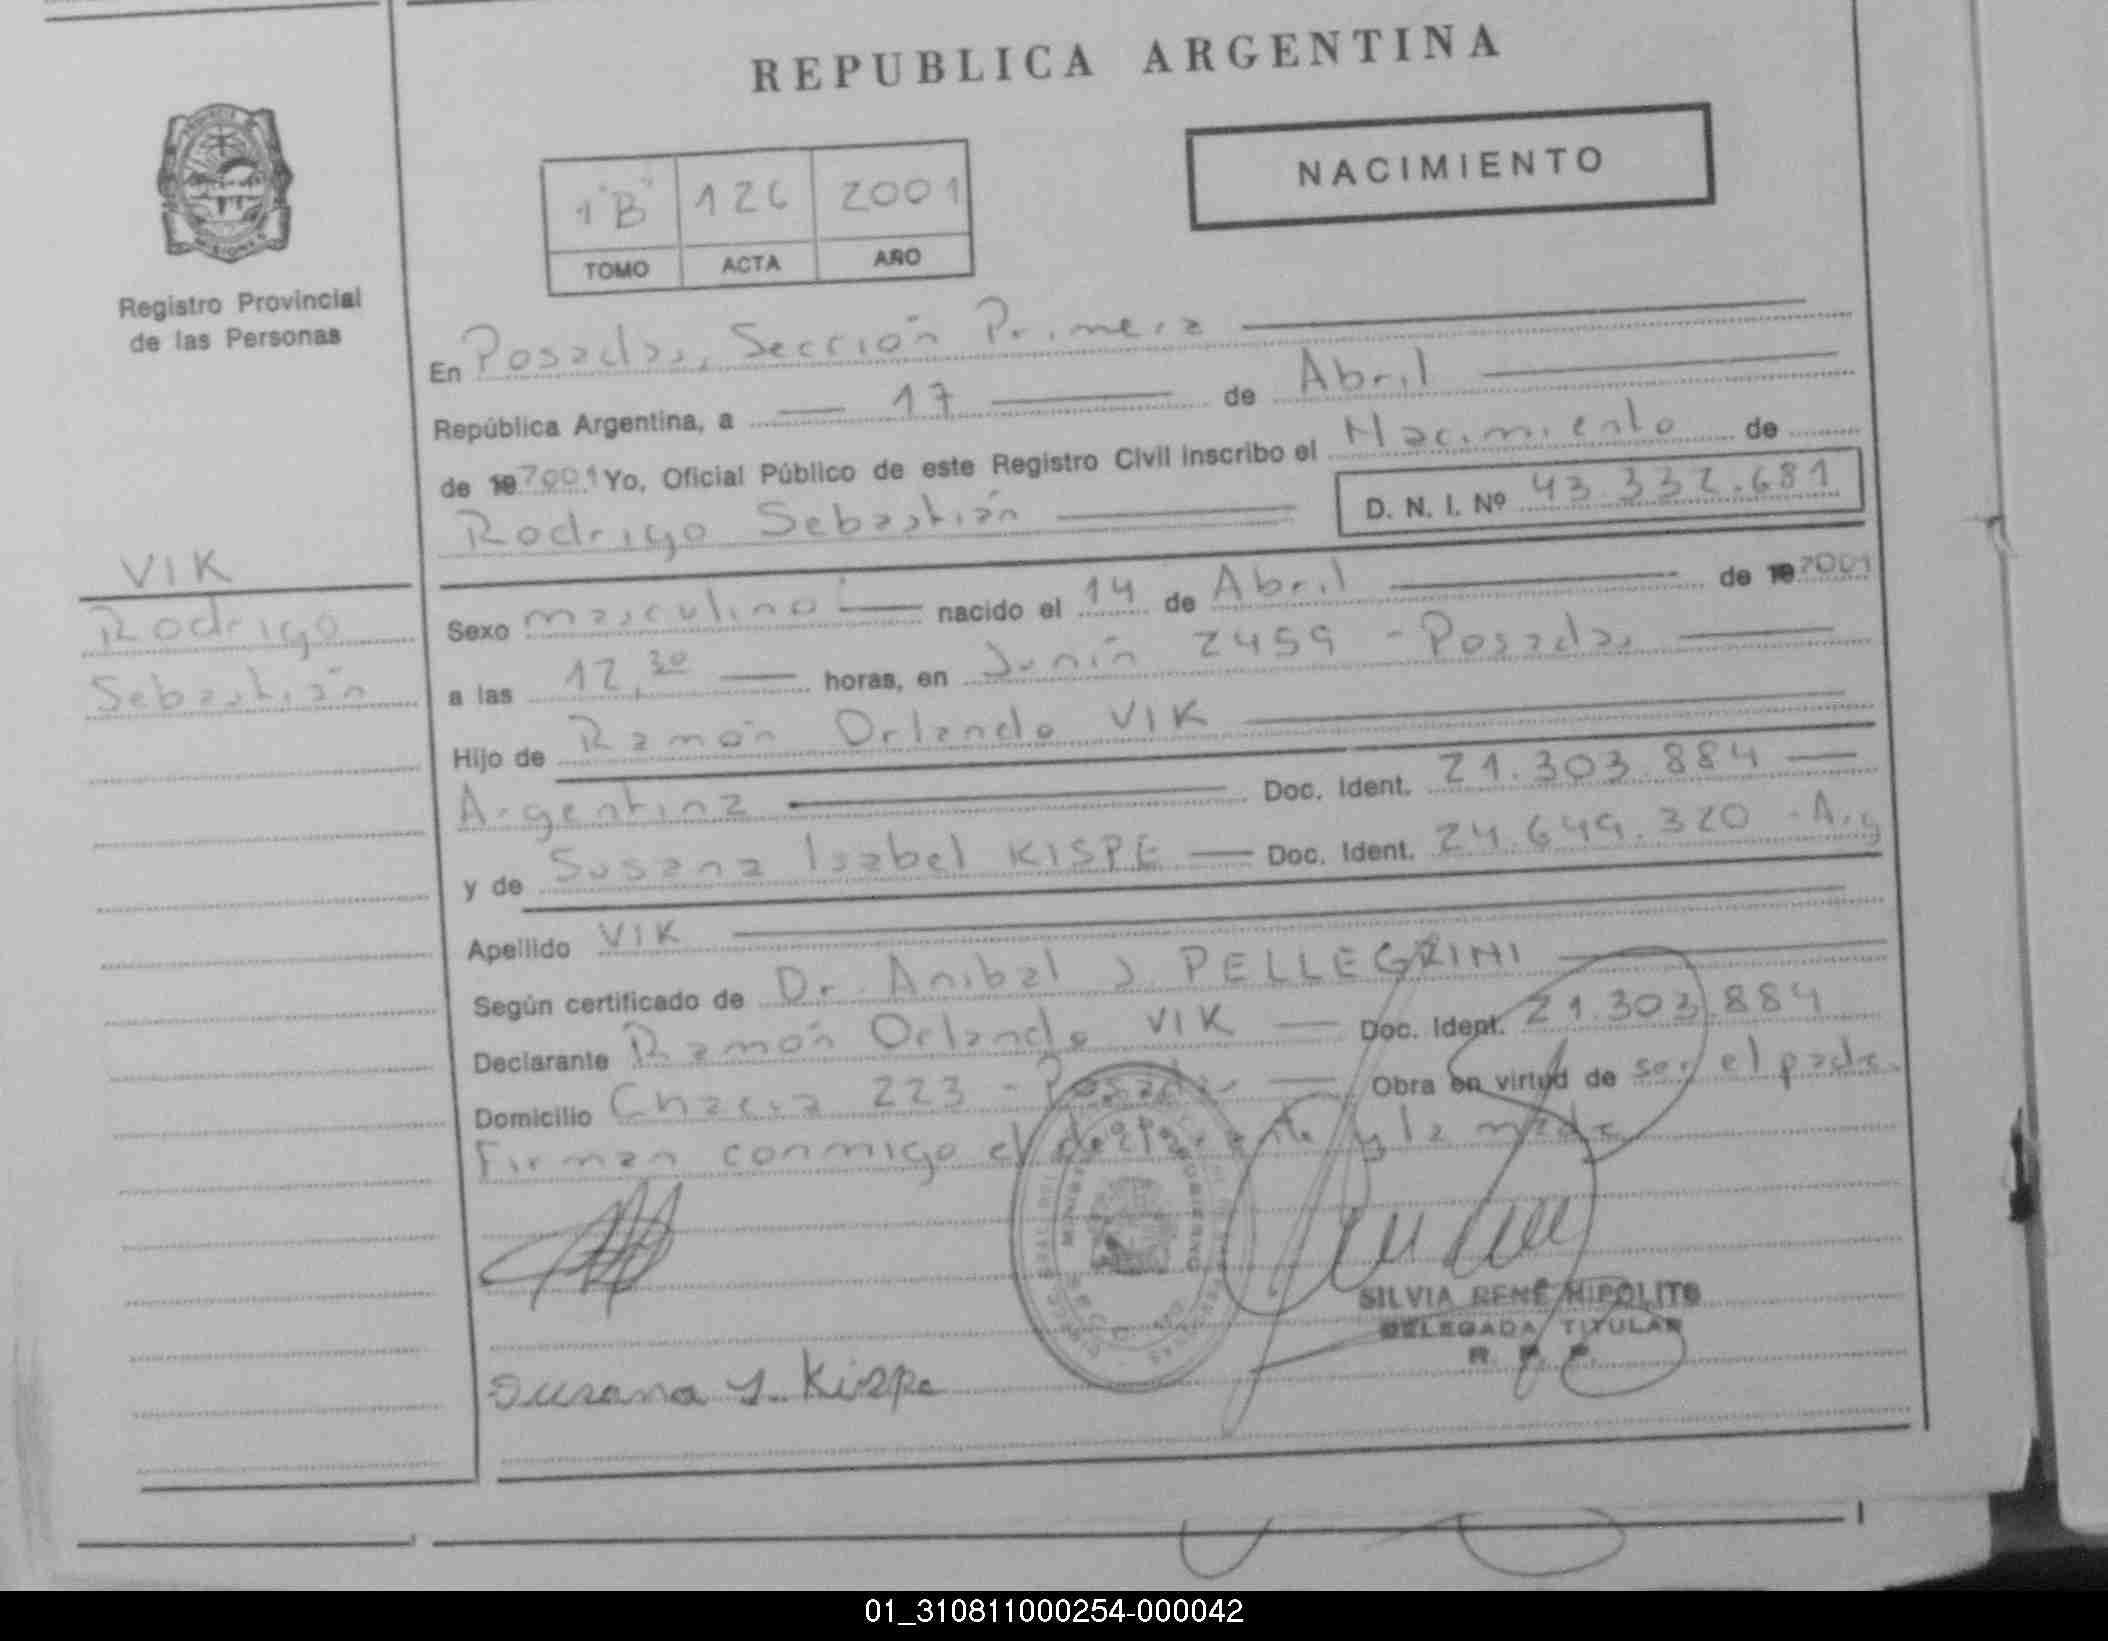 REPUBLICA ARGENTINA
NACIMIENTO
1 "B" 126 2001
TOMO ACTA AÑO
Registro Provincial
de las Personas
En Posadas, Sección Primera
República Argentina, a 17 de Abril
de 19 2001 Yo, Oficial Público de este Registro Civil inscribo el Nacimiento de
Rodrigo Sebastián D. N. I. Nº 43.332.681
VIK
Rodrigo
Sebastián
Sexo masculino nacido el 14 de Abril de 19 2001
a las 12,30 horas, en Junín 2459 - Posadas
Hijo de Ramón Orlando VIK
Argentina Doc. Ident. 21.303.884
y de Susana Isabel KISPE Doc. Ident. 24.649.320 - Arg
Apellido VIK
Según certificado de Dr. Anibal J. PELLEGRINI
Declarante Ramón Orlando VIK Doc. Ident. 21.303.884
Domicilio Chacra 223 - Posadas Obra en virtud de ser el padre.
Firman conmigo el declarante y la madre
MINISTERIO GOBIERNO
SILVIA RENÉ HIPOLITO
DELEGADA TITULAR
R. P. P.
Susana Y. Kispe
01_310811000254-000042